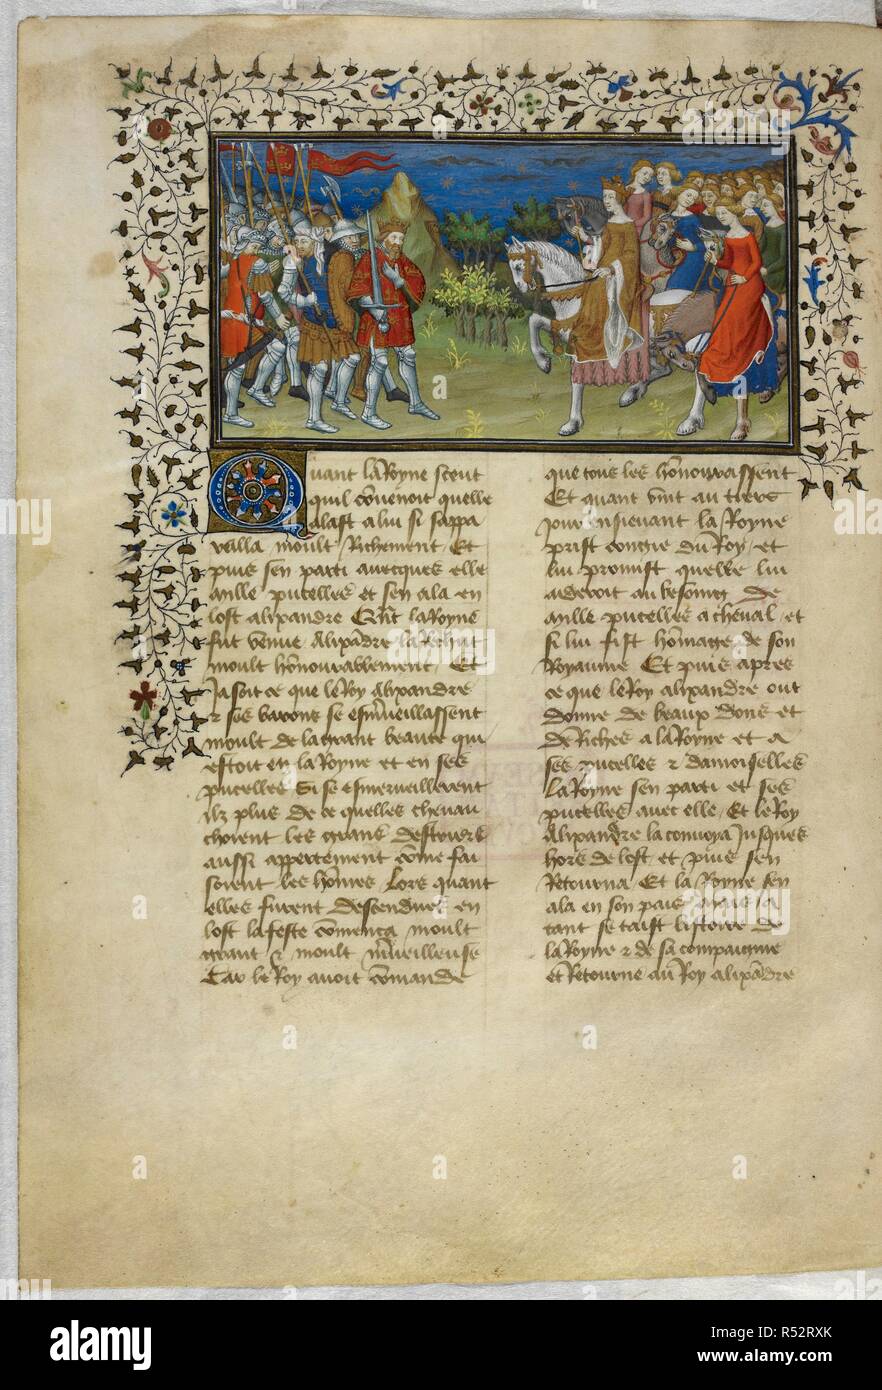 Quant la Royne sceut
quil cōuenoit quelle
alast a lui si sappa
reilla moult Richement Et
puis sen parti auecques elle
mille pucelles et sen ala en
lost alixandre Et q̄nt la Royne
fut venue Alixādre la Receut
moult hōnourablement Et
Jasoit ce que le Roy Alixandre
& ses barons se esm̄ueillassent
moult de la grant beaute qui
estoit en la Royne et en ses
pucelles Si se esmerueillerent
ilz plus de ce quelles cheuau
choient les grans destriers
aussi appertement cōme fai
soient les hōmes Lors quant
elles furent descendues en
lost la feste cōmenca moult
grant & moult m̄ueilleuse
Car le Roy auoit cōmande
que tous les hōnourassent
Et quant vint au tiers
jour ensieuant la Royne
prist congie du Roy et
lui promist quelle lui
aideroit au besoing de
mille pucelles a cheual et
si lui fist hōmage de son
Royaume Et puis apres
ce que le Roy alixandre out
donne de beaup dons et
de Riches a la Royne et a
ses pucelles & damoiselles
La Royne sen parti et ses
pucelles auec elle Et le Roy
Alixandre la conuoya Jusques
hors de lost et puis sen
Retourna Et la Royne sen
ala en son pais Mais a
tant se taist listoire de
la Royne & de sa compaignie
et Retourne au Roy alixādre
alamy
Image ID: R52RXK
www.alamy.com